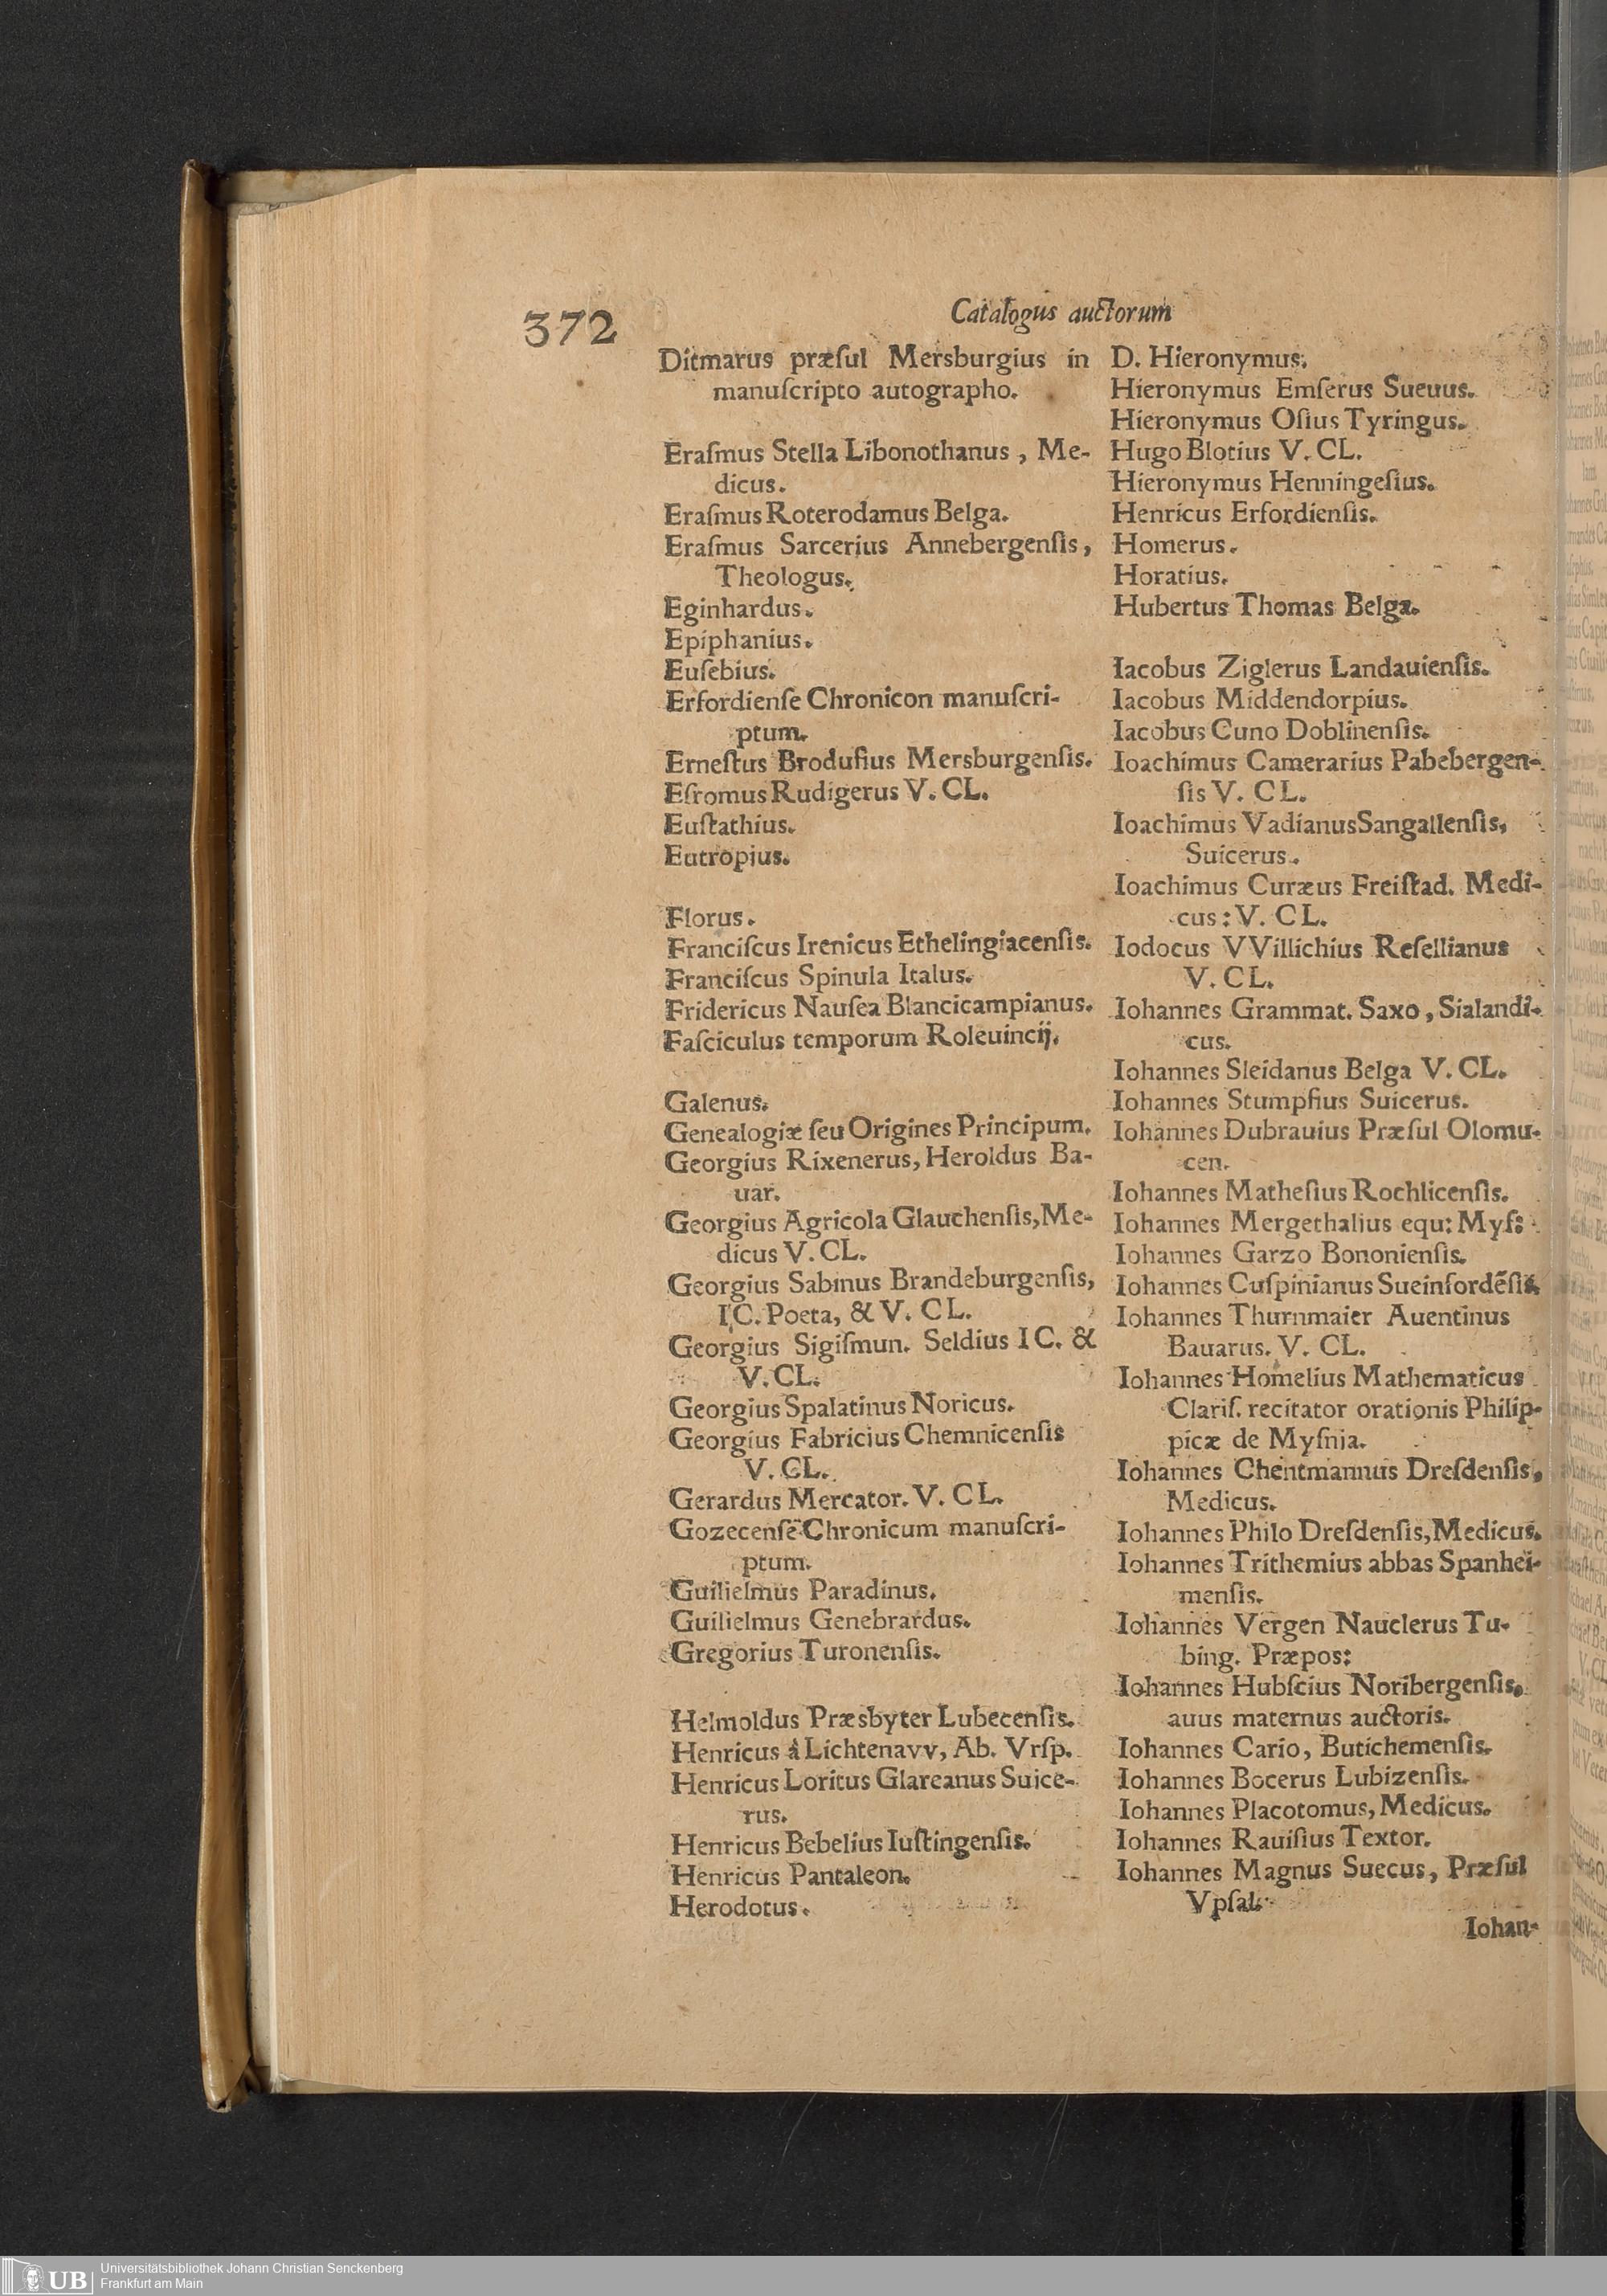 372
Catalogus auctorum
Ditmarus præſul Mersburgius in
manuſcripto autographo.
Eraſmus Stella Libonothanus, Me-
dicus.
Eraſmus Roterodamus Belga.
Eraſmus Sarcerius Annebergenſis,
Theologus.
Eginhardus.
Epiphanius.
Euſebius.
Erfordienſe Chronicon manuſcri-
ptum.
Erneſtus Brodufius Mersburgenſis.
Eſromus Rudigerus V. CL.
Euſtathius.
Eutropius.
Florus.
Franciſcus Irenicus Ethelingiacenſis.
Franciſcus Spinula Italus.
Fridericus Nauſea Blancicampianus.
Faſciculus temporum Roleuincij.
Galenus.
Genealogiæ ſeu Origines Principum.
Georgius Rixenerus, Heroldus Ba-
uar.
Georgius Agricola Glauchenſis, Me-
dicus V. CL.
Georgius Sabinus Brandeburgenſis,
IC. Poeta, & V. CL.
Georgius Sigiſmun. Seldius IC. &
V. CL.
Georgius Spalatinus Noricus.
Georgius Fabricius Chemnicenſis
V. CL.
Gerardus Mercator. V. CL.
Gozecenſe Chronicum manuſcri-
ptum.
Guilielmus Paradinus.
Guilielmus Genebrardus.
Gregorius Turonenſis.
Helmoldus Præsbyter Lubecenſis.
Henricus à Lichtenavv, Ab. Vrſp.
Henricus Loritus Glareanus Suice-
rus.
Henricus Bebelius Iuſtingenſis.
Henricus Pantaleon.
Herodotus.
D. Hieronymus.
Hieronymus Emſerus Sueuus.
Hieronymus Oſius Tyringus.
Hugo Blotius V. CL.
Hieronymus Henningeſius.
Henricus Erfordienſis.
Homerus.
Horatius.
Hubertus Thomas Belga.
Iacobus Ziglerus Landauienſis.
Iacobus Middendorpius.
Iacobus Cuno Doblinenſis.
Ioachimus Camerarius Pabebergen-
ſis V. CL.
Ioachimus Vadianus Sangallenſis,
Suicerus.
Ioachimus Curæus Freiſtad. Medi-
cus: V. CL.
Iodocus VVillichius Reſellianus
V. CL.
Iohannes Grammat. Saxo, Sialandi-
cus.
Iohannes Sleidanus Belga V. CL.
Iohannes Stumpfius Suicerus.
Iohannes Dubrauius Præſul Olomu-
cen.
Iohannes Matheſius Rochlicenſis.
Iohannes Mergethalius equ: Myſ:
Iohannes Garzo Bononienſis.
Iohannes Cuſpinianus Sueinfordẽſis.
Iohannes Thurnmaier Auentinus
Bauarus. V. CL.
Iohannes Homelius Mathematicus
Clariſ. recitator orationis Philip-
picæ de Myſnia.
Iohannes Chentmannus Dreſdenſis,
Medicus.
Iohannes Philo Dreſdenſis, Medicus.
Iohannes Trithemius abbas Spanhei-
menſis.
Iohannes Vergen Nauclerus Tu-
bing. Præpos:
Iohannes Hubſcius Noribergenſis,
auus maternus auctoris.
Iohannes Cario, Butichemenſis.
Iohannes Bocerus Lubizenſis.
Iohannes Placotomus, Medicus.
Iohannes Rauiſius Textor.
Iohannes Magnus Suecus, Præſul
Vpſal.
Iohan-
UB
Universitätsbibliothek Johann Christian Senckenberg
Frankfurt am Main